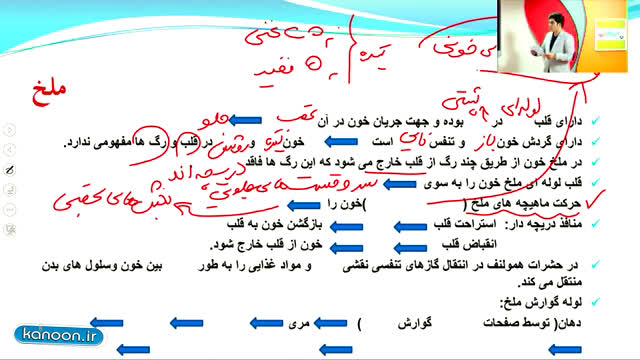 ملخ
دارای قلب لوله‌ای در پشتی بوده و جهت جریان خون در آن عقب جلو
دارای گردش خون باز و تنفس نایی است خون تیره و روشن در قلب و رگ ها مفهومی ندارد.
در ملخ خون از طریق چند رگ از قلب خارج می شود که این رگ ها فاقد دریچه اند
قلب لوله ای ملخ خون را به سوی سر و قسمت های جلویی
حرکت ماهیچه های ملخ ( )خون را بخش های عقبی
منافذ دریچه دار: استراحت قلب بازگشن خون به قلب
انقباض قلب خون از قلب خارج شود.
در حشرات همولنف در انتقال گازهای تنفسی نقشی و مواد غذایی را به طور بین خون وسلول های بدن
منتقل می کند.
لوله گوارش ملخ:
دهان( توسط صفحات گوارش ) مری
kanoon.ir